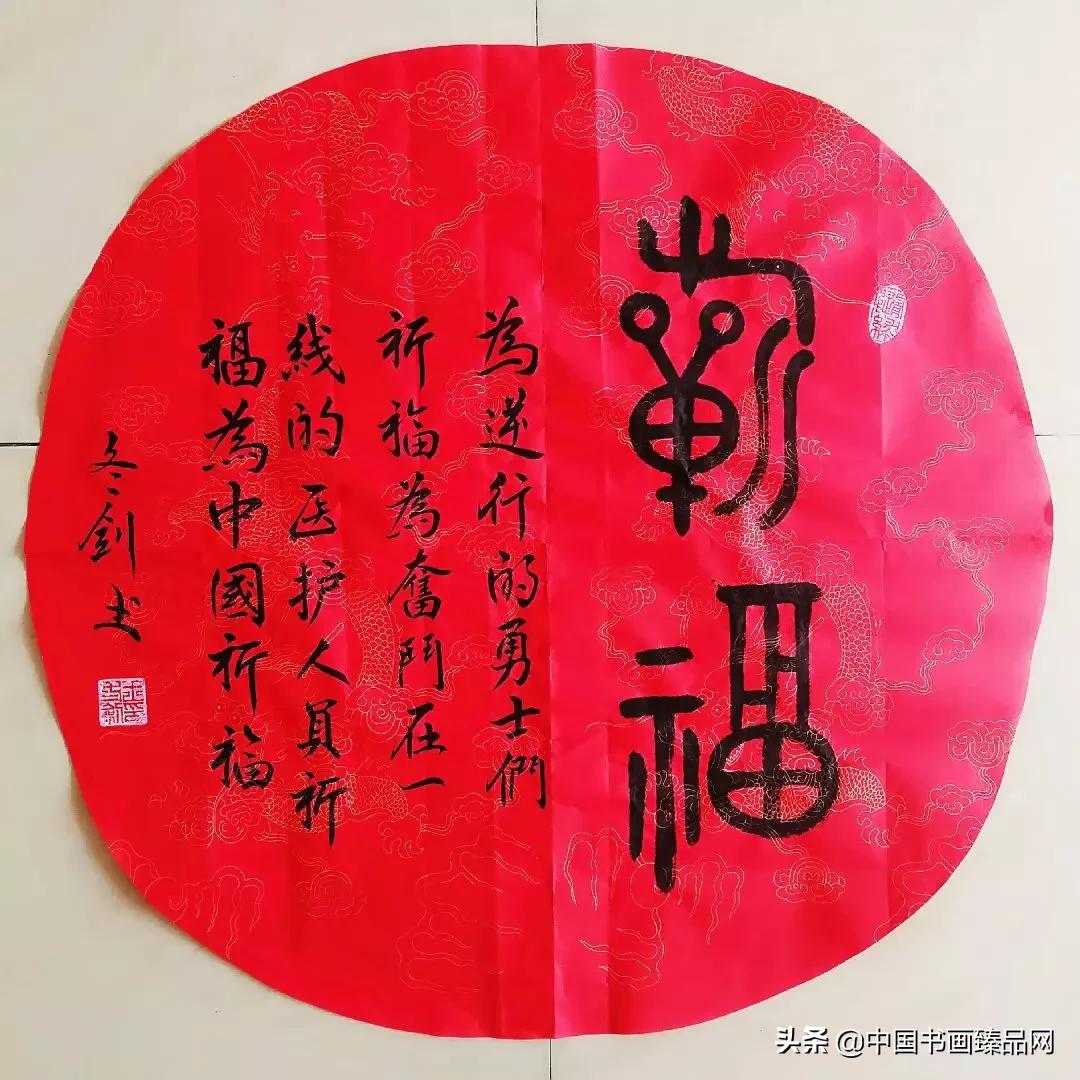 祈福
為逆行的勇士們
祈福為奮鬥在一
线的医护人員祈
福為中國祈福
冬剑书
头条 @中国书画臻品网